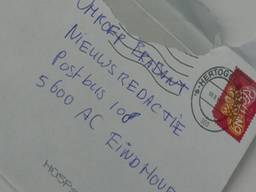 OMROEP BRABANT
NIEUWSREDACTIE
Postbus 108
5600 AC EINDHOVE
HERTOG
HOSP